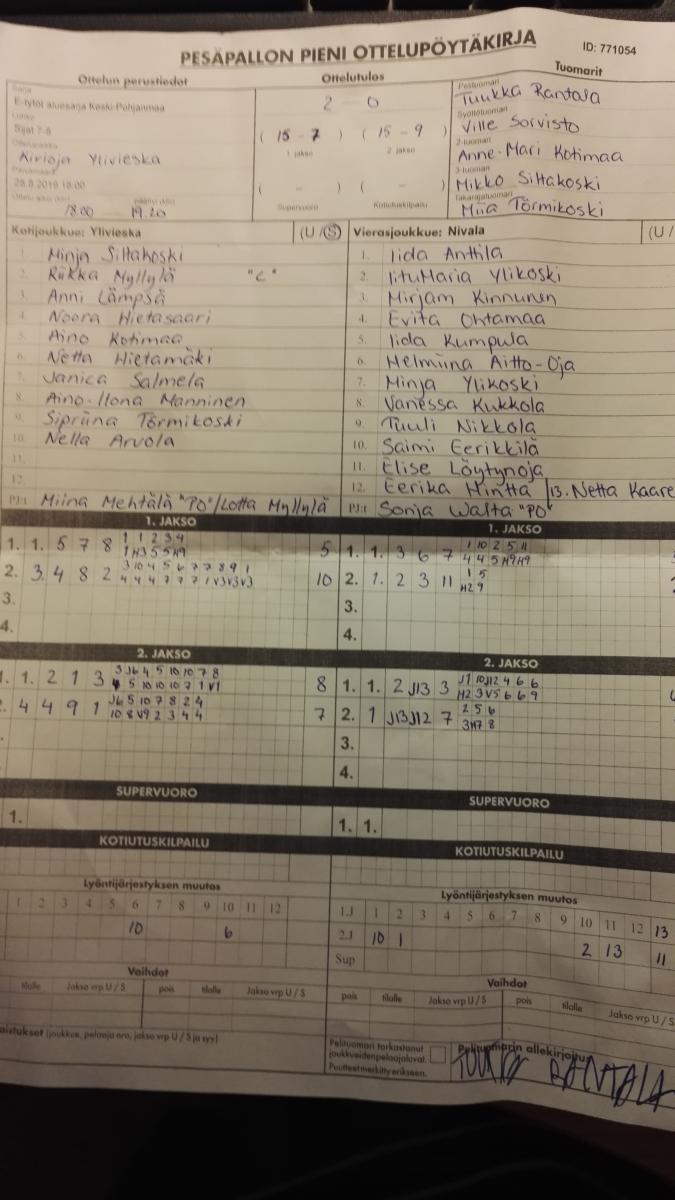 PESÄPALLON PIENI OTTELUPÖYTÄKIRJA
ID: 771054
Ottelun perustiedot
Ottelutulos
Tuomarit
Sarja
E-tytöt aluesarja Keski-Pohjanmaa
Lohko
Sijat 7-8
Kirioja Ylivieska
28.8.2019 18:00
18.00 19.20
2 - 0
( 15 - 7 ) ( 15 - 9 )
1 jakso 2 jakso
( - ) ( - )
Supervuoro Kotiutuskilpailu
Pelituomari
Tuukka Rantala
Syöttötuomari
Ville Sorvisto
2-tuomari
Anne-Mari Kotimaa
3-tuomari
Mikko Siltakoski
Takarajatuomari
Miia Törmikoski
Kotijoukkue: Ylivieska (U / S)
1. Minja Siltakoski
2. Riikka Myllylä "C"
3. Anni Lämpsä
4. Noora Hietasaari
5. Aino Kotimaa
6. Netta Hietamäki
7. Janica Salmela
8. Aino-Ilona Manninen
9. Sipriina Törmikoski
10. Nella Arvola
11.
12.
PJ:t Miina Mehtälä "PO" / Lotta Myllylä
Vierasjoukkue: Nivala (U /
1. Iida Anttila
2. IituMaria Ylikoski
3. Mirjam Kinnunen
4. Evita Ohtamaa
5. Iida Kumpula
6. Helmiina Aitto-Oja
7. Minja Ylikoski
8. Vanessa Kukkola
9. Tuuli Nikkola
10. Saimi Eerikkilä
11. Elise Löytynoja
12. Eerika Hintta /13. Netta Kaare
PJ:t Sonja Walta "PO"
1. JAKSO
1. 1. 5 7 8 1 1 2 3 4 5
1 H3 5 5 H9
2. 3 4 8 2 3 10 4 5 6 7 7 8 9 1 10
4 4 4 7 7 7 1 V3 V3 V3
3.
4.
1. JAKSO
1. 1. 3 6 7 1 10 2 5 11
4 4 5 H9 H9
2. 1. 2 3 11 1 5
H2 9
3.
4.
2. JAKSO
1. 1. 2 1 3 3 J6 4 5 10 10 7 8 8
5 10 10 10 7 1 V1
4 4 9 1 J6 5 10 7 8 2 4 7
10 8 V9 2 3 4 4
2. JAKSO
1. 1. 2 J13 3 J1 10 J12 4 6 6
H2 3 V5 6 6 9
2. 1 J13 J12 7 2 5 6
3 H7 8
3.
4.
SUPERVUORO
1.
SUPERVUORO
1. 1.
KOTIUTUSKILPAILU
KOTIUTUSKILPAILU
Lyöntijärjestyksen muutos
1 2 3 4 5 6 7 8 9 10 11 12
10 6
Lyöntijärjestyksen muutos
1.J 1 2 3 4 5 6 7 8 9 10 11 12 13
2.J 10 1 2 13 11
Sup
Vaihdot
tilalle Jakso vrp U / S pois tilalle Jakso vrp U / S
Vaihdot
pois tilalle Jakso vrp U / S pois tilalle Jakso vrp U / S
(joukkue, pelaaja nro, jakso vrp U / S ja syy)
Pelituomari tarkastanut
joukkueidenpelaajaluvat.
Puutteet merkitty erikseen.
Pelituomarin allekirjoitus
TUUKKA RANTALA